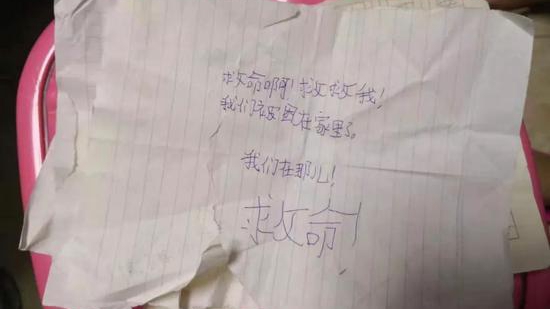 救命啊！救救我！
我们被困在家里了。
我们在那儿！
救命！